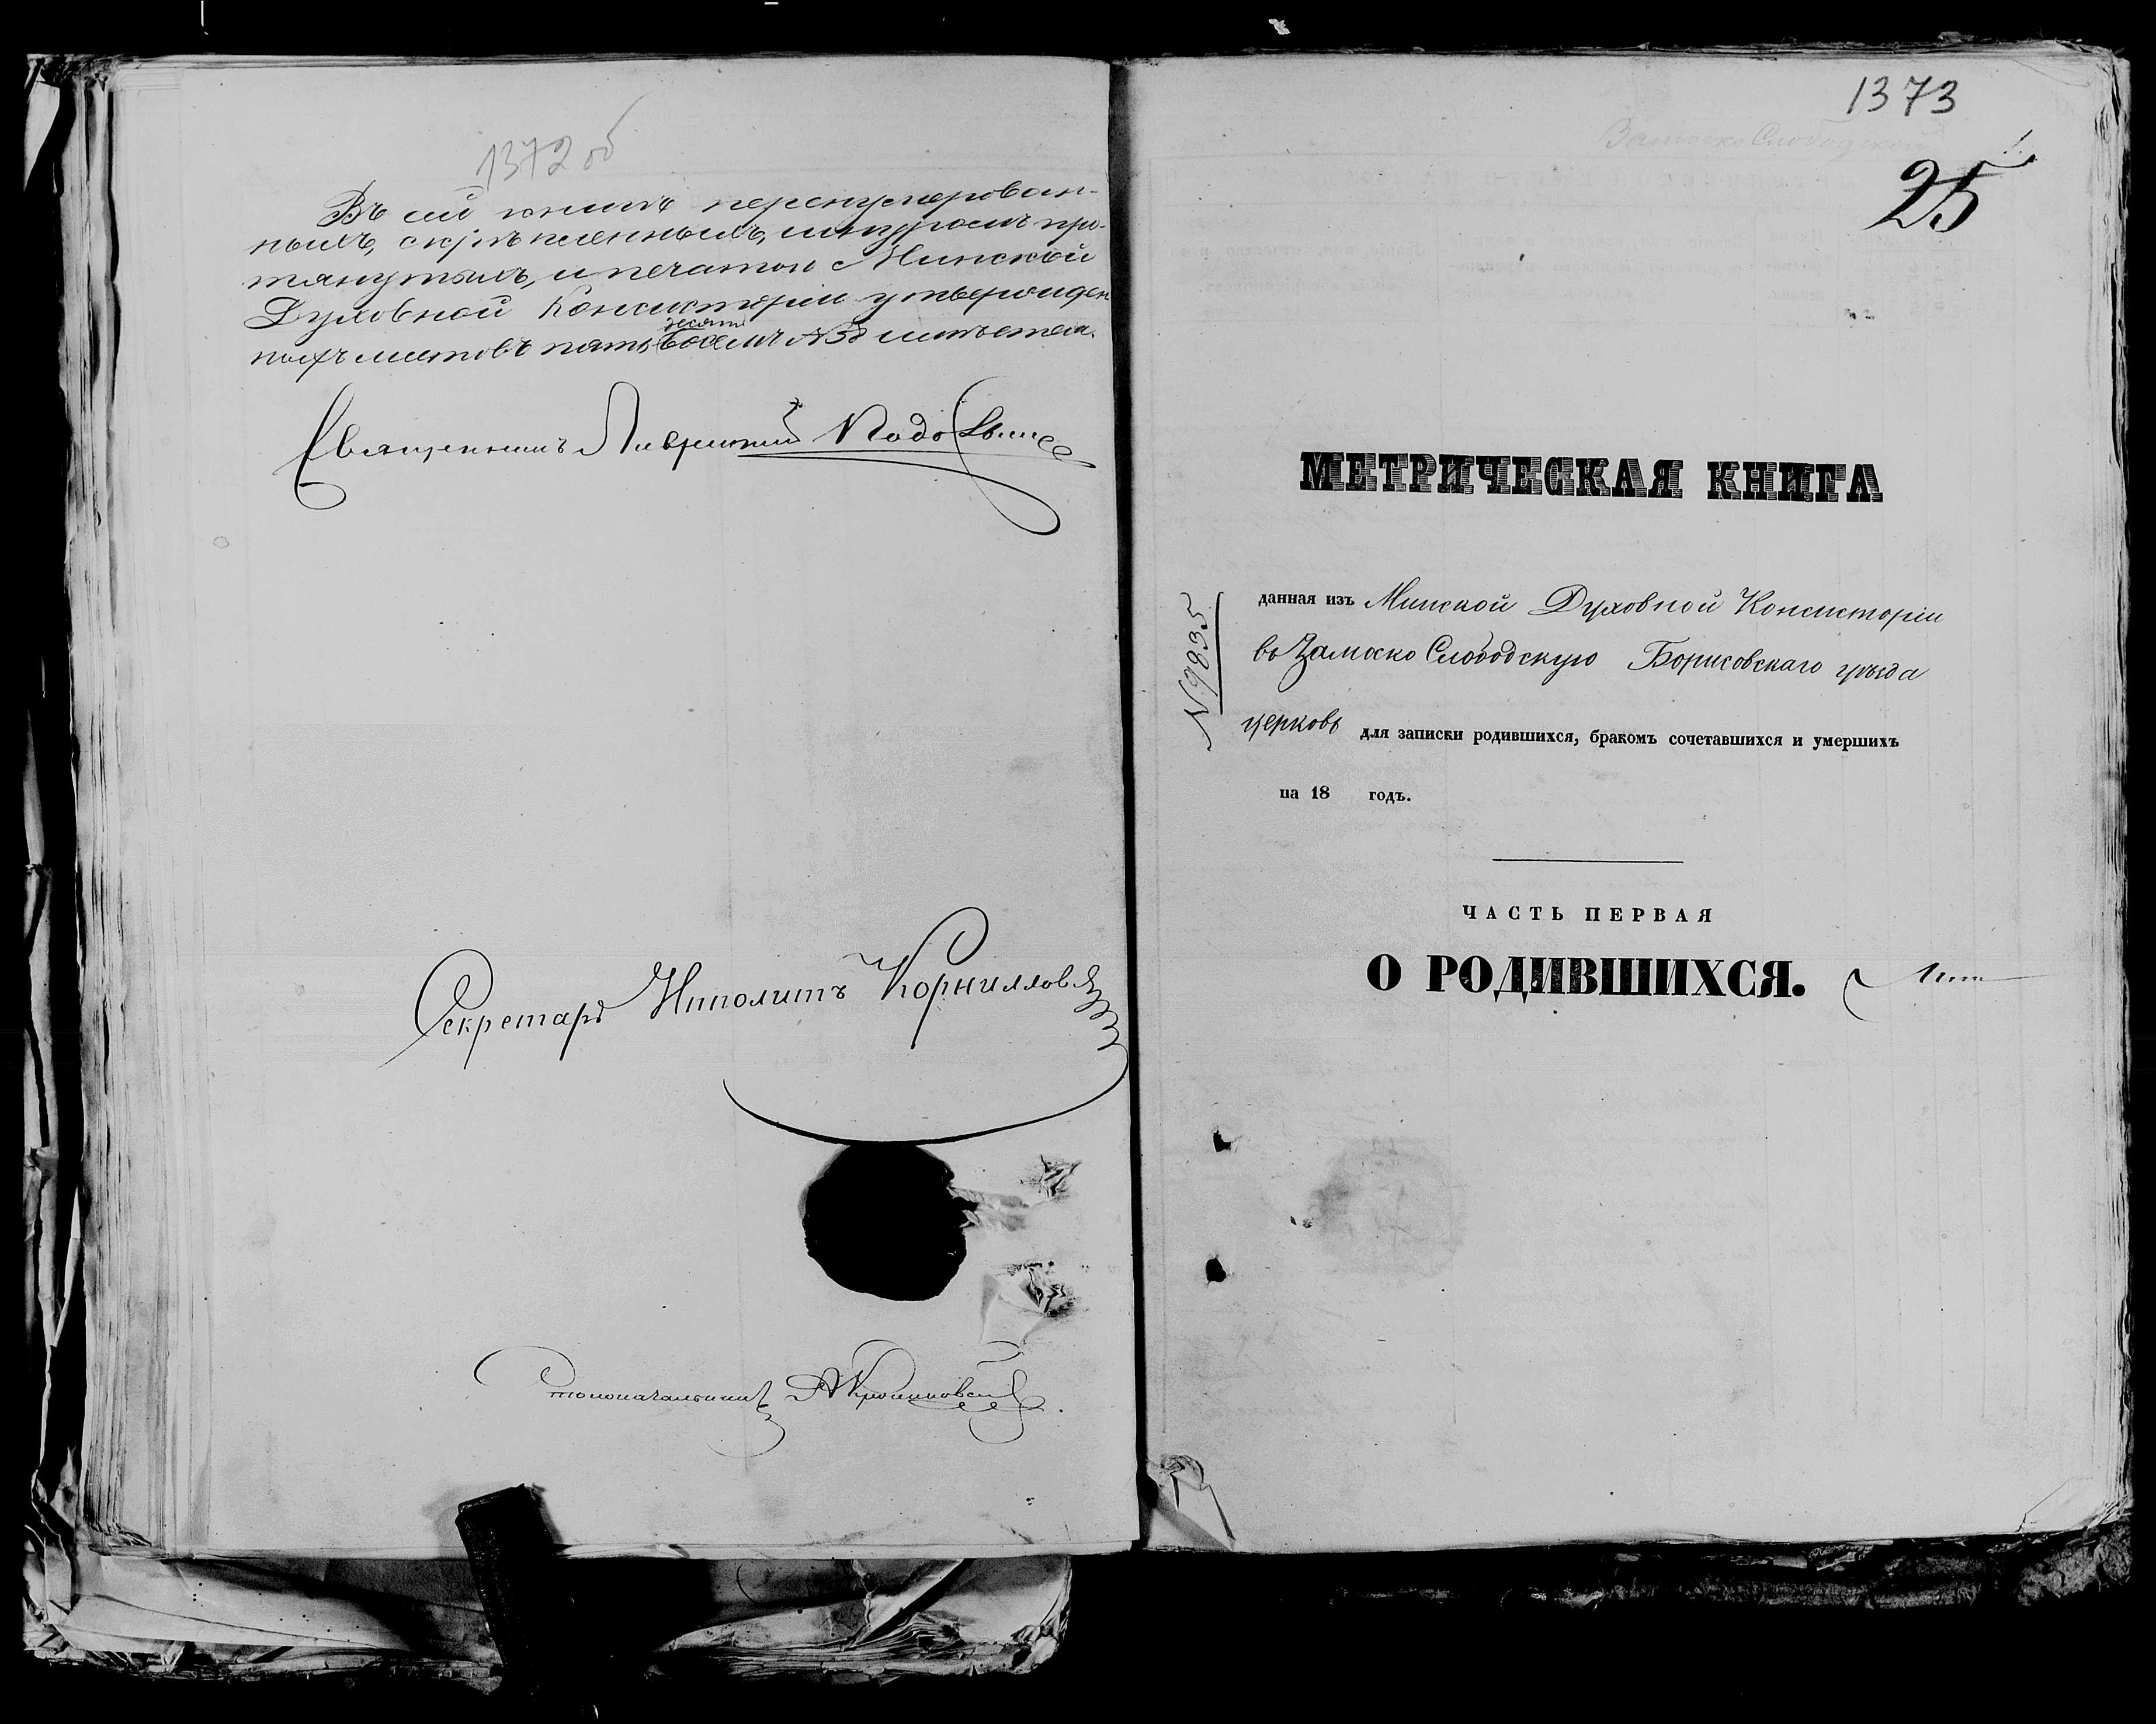 1372 об
Въ сей книгѣ перенумерован-
ныхъ, скрѣпленныхъ, шнуромъ про-
тянутыхъ, и печатью Минской
Духовной Консисторіи утвержден
ныхъ листовъ пять десятъ восемь №58 имѣется.
Священникъ
Секретарь Ипполитъ Корниллов
Столоначальникъ
1373
Замоско Слободской
1.
25
МЕТРИЧЕСКАЯ КНИГА
№9835
данная изъ Минской Духовной Консисторіи
во Замоско Слободскую Борисовскаго уѣзда
церковь для записки родившихся, бракомъ сочетавшихся и умершихъ
на 18 годъ.
ЧАСТЬ ПЕРВАЯ
О РОДИВШИХСЯ.